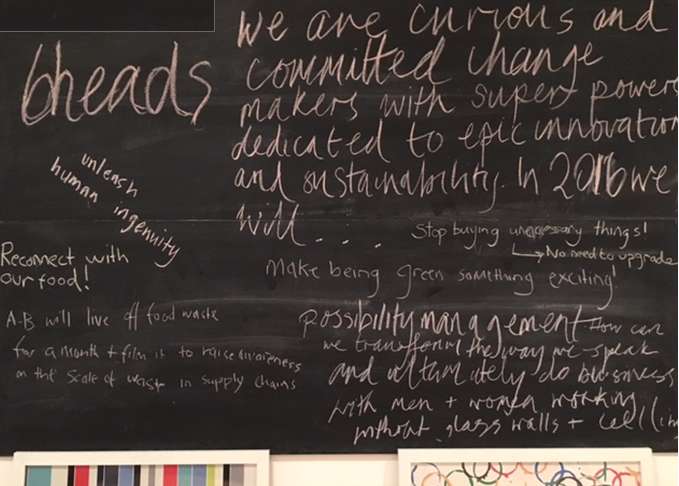 6heads
we are curious and
committed change
makers with super powers
dedicated to epic innovation
and sustainability. In 2016 we
will....
unleash
human ingenuity
Stop buying unnecessary things!
No need to upgrade
Reconnect with
our food!
Make being green something exciting!
A-B will live off food waste
for a month + film it to raise awareness
on the scale of waste in supply chains
possibility management How can
we transform the way we speak
and ultimately do business
with men + women working
without glass walls +